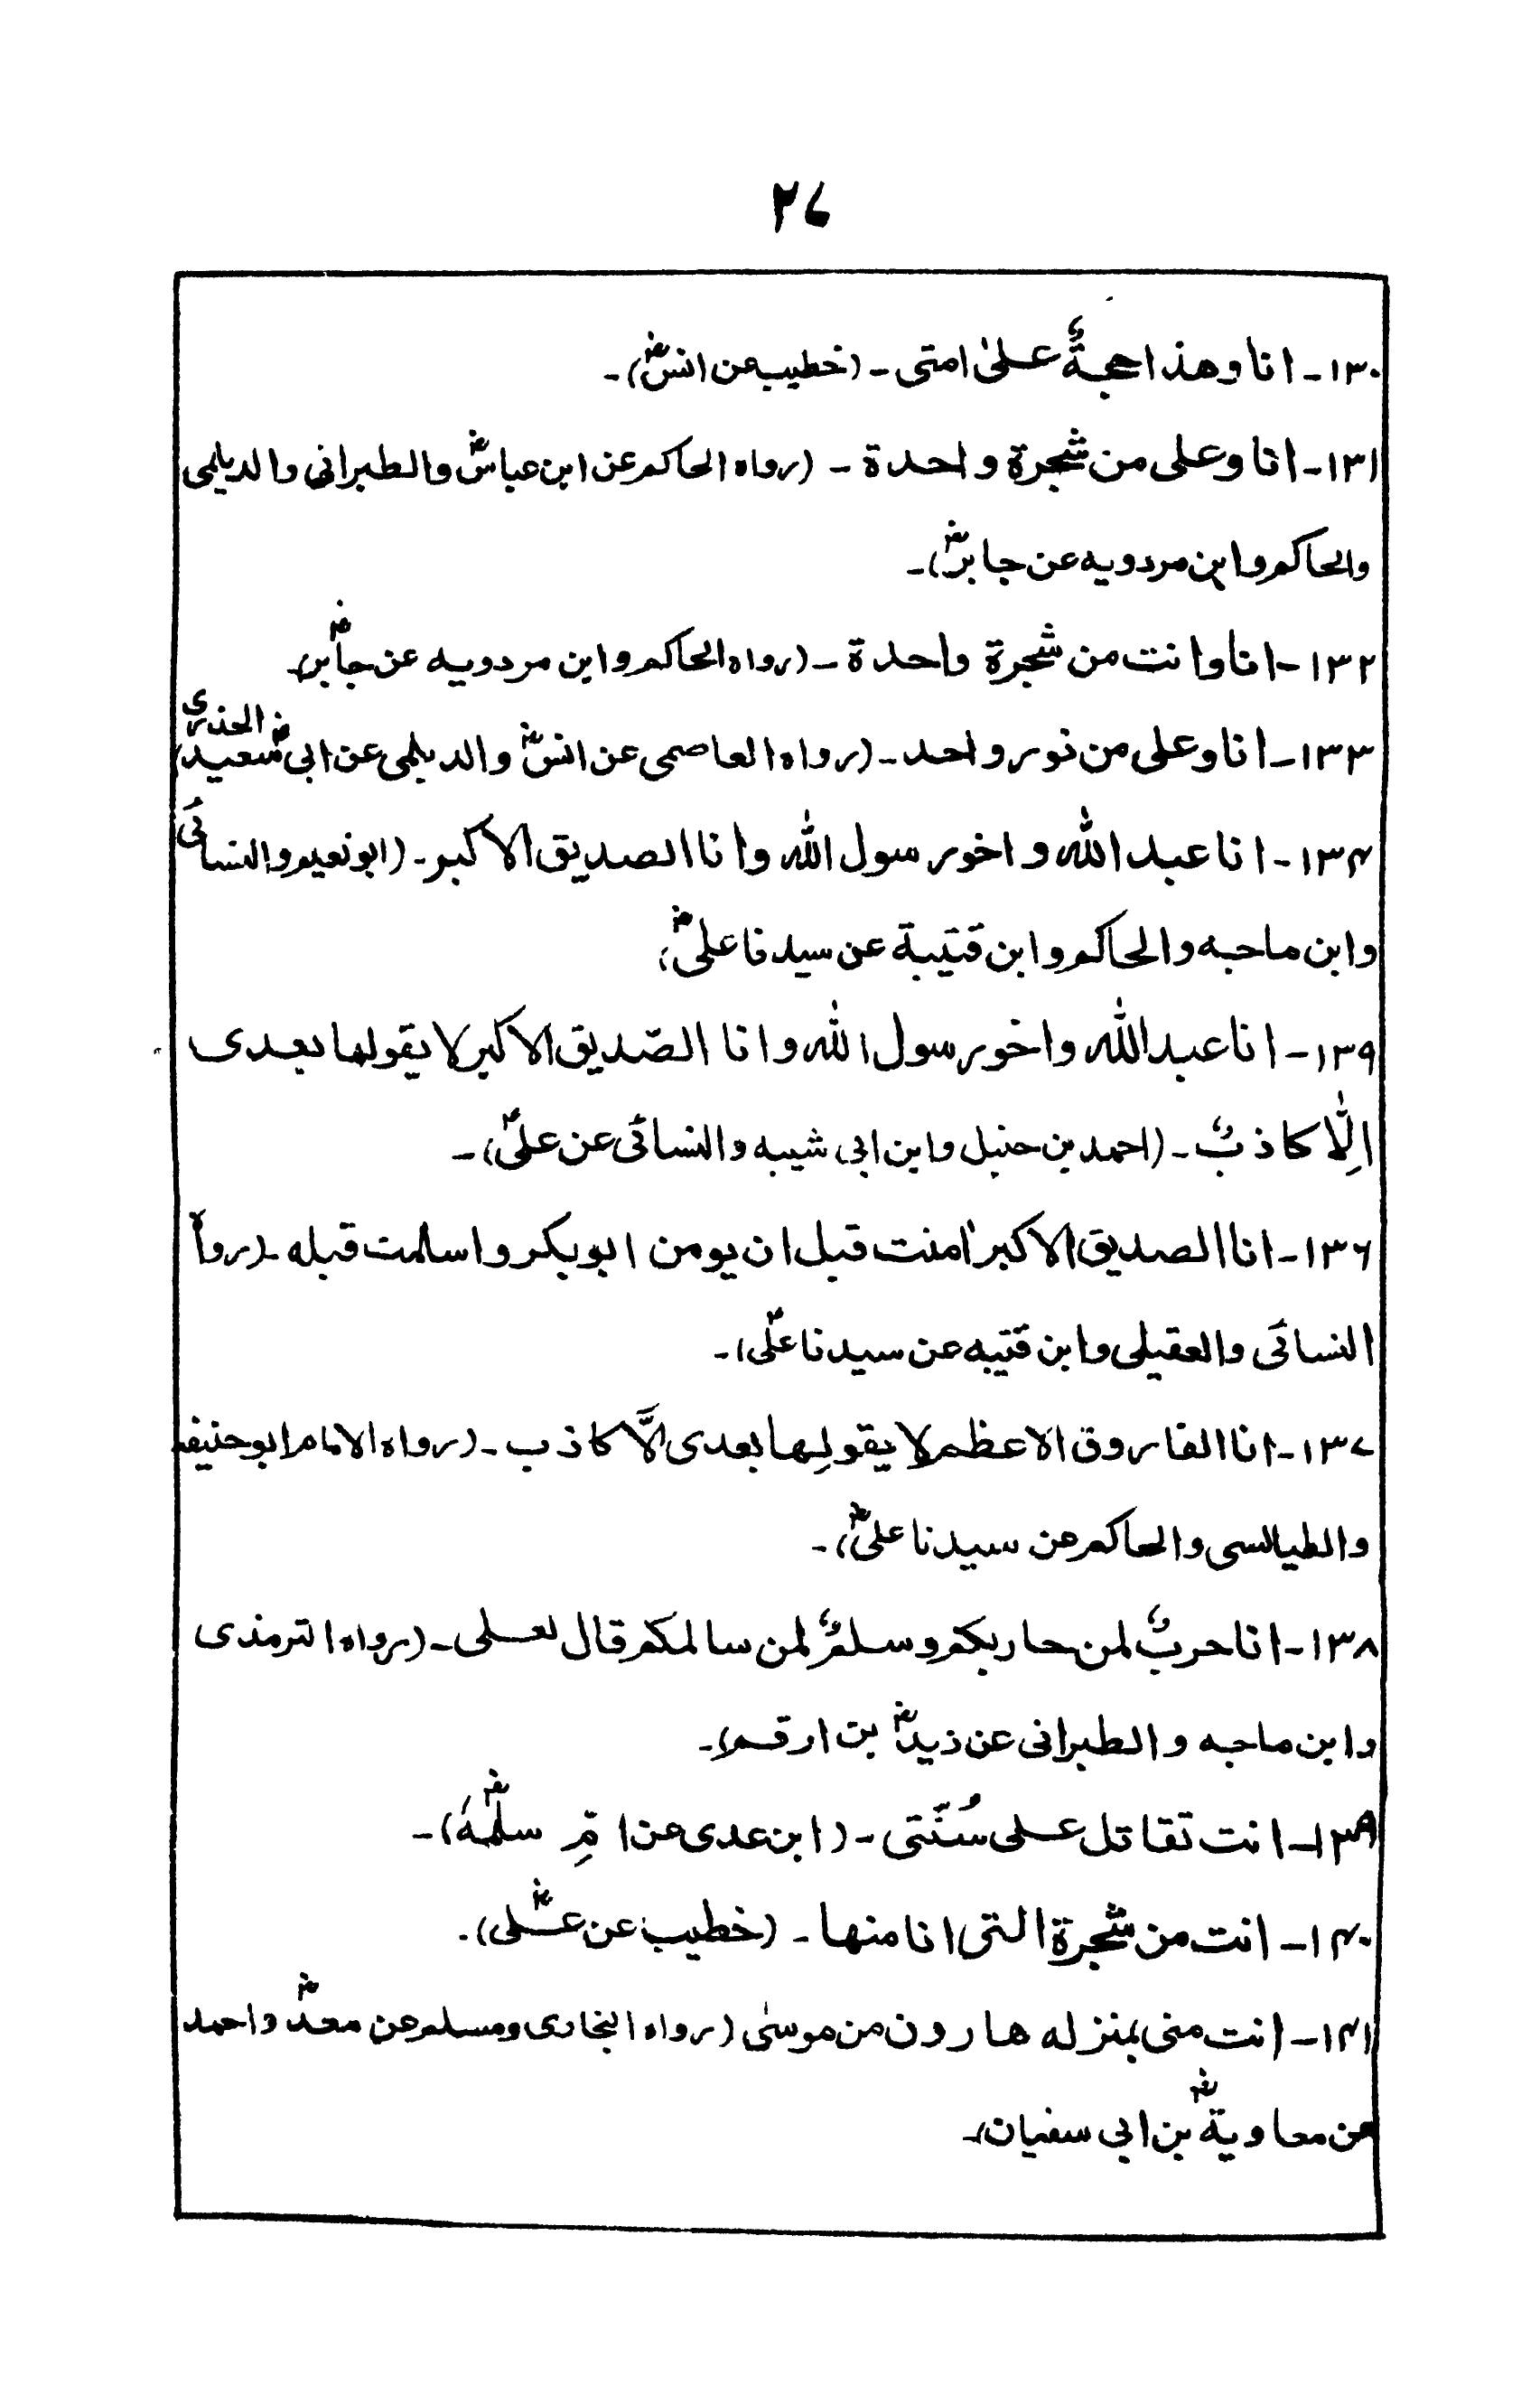 ۲۷
۱۳۰ - انا وهذا حجةٌ علیٰ امتی - (خطیب عن انسؓ) -
۱۳۱ - انا وعلی من شجرة واحدة - (رواه الحاکم عن ابن عباسؓ والطبرانی والدیلمی
والحاکم وابن مردویه عن جابرؓ) -
۱۳۲ - انا وانت من شجرة واحدة - (رواه الحاکم وابن مردویه عن جابرؓ) -
۱۳۳ - انا وعلی من نور واحد - (رواه العاصمی عن انسؓ والدیلمی عن ابی سعیدؓ الخذری)
۱۳۴ - انا عبد الله واخو رسول الله وانا الصدیق الاکبر - (ابونعیم والنسائی
وابن ماجه والحاکم وابن قتیبة عن سیدنا علیؓ)
۱۳۹ - انا عبدالله واخو رسول الله وانا الصّدیق الاکبر لا یقولها بعدی
اِلّا کاذبٌ - (احمد بن حنبل وابن ابی شیبه والنسائی عن علیؓ) -
۱۳۶ - انا الصدیق الاکبر اٰمنت قبل ان یومن ابوبکر واسلمت قبله - (رواه
النسائی والعقیلی وابن قتیبه عن سیدنا علیؓ) -
۱۳۷ - انا الفاروق الاعظم لا یقولها بعدی الَّا کاذب - (رواه الامام ابوحنیفه
والطیالسی والحاکم عن سیدنا علیؓ) -
۱۳۸ - انا حربٌ لمن حاربکم وسلمٌ لمن سالمکم قال لعلی - (رواه الترمذی
وابن ماجه والطبرانی عن زیدؓ بن ارقم) -
۱۳۹ - انت تقاتل علی سُنَّتی - (ابن عدی عن امِّ سلمهؓ) -
۱۴۰ - انت من شجرة التی انا منها - (خطیب عن علیؓ) -
۱۴۱ - انت منی بمنزله هارون من موسیٰ (رواه البخاری ومسلم عن معدؓ واحمد
عن معاویةؓ بن ابی سفیان) -